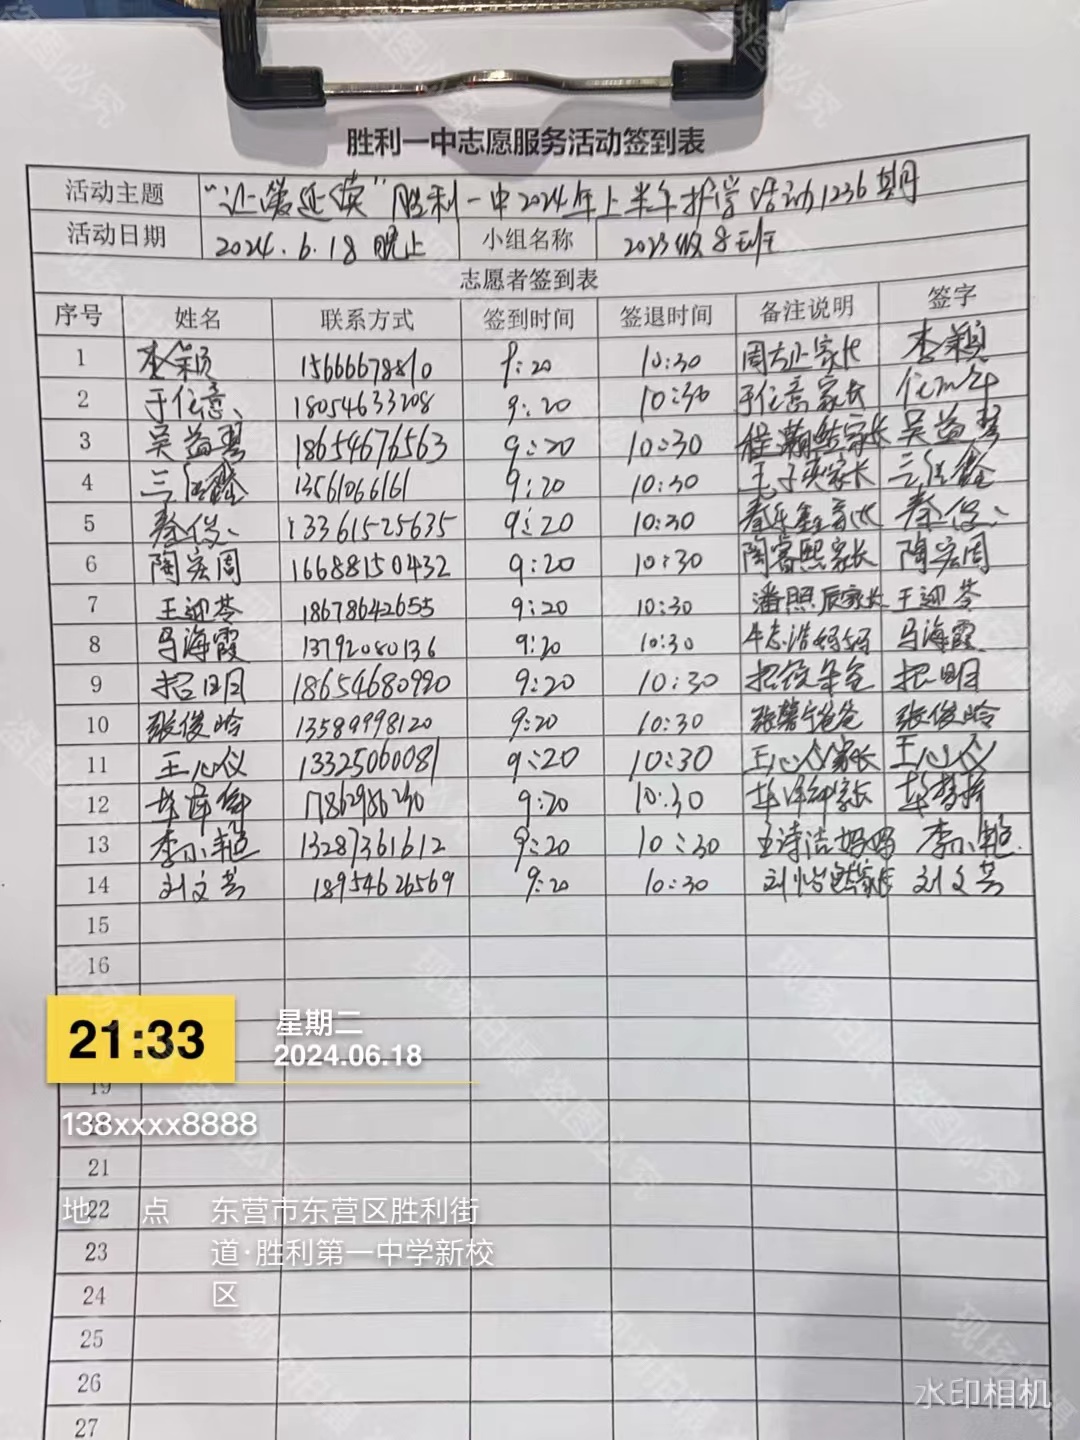 胜利一中志愿服务活动签到表
活动主题 “让爱延续”胜利一中2024年上半年护学活动1236期
活动日期 2024.6.18晚上 小组名称 2023级8班
志愿者签到表
序号 姓名 联系方式 签到时间 签退时间 备注说明 签字
1 李颖 15666678810 9:20 10:30 家长 李颖
2 于任意 18054633208 9:20 10:30 于任意家长
3 吴益琴 18654676563 9:20 10:30 家长 吴益琴
4 13561066161 9:20 10:30 家长
5 秦俊 13361525635 9:20 10:30 秦俊
6 陶宏周 16688150432 9:20 10:30 陶睿熙家长 陶宏周
7 王迎苓 18678642655 9:20 10:30 潘照辰家长 王迎苓
8 马海霞 13792080136 9:20 10:30 牛志浩妈妈 马海霞
9 18654680990 9:20 10:30
10 张俊岭 13589998120 9:20 10:30 爸爸 张俊岭
11 王心仪 13325060081 9:20 10:30 王心仪家长 王心仪
12 17862986230 9:20 10:30 家长
13 李小艳 13287361612 9:20 10:30 王诗洁妈妈 李小艳
14 刘文芸 18954626569 9:20 10:30 刘怡然家长 刘文芸
15
16
21:33 星期二
2024.06.18
19
138xxxx8888
21
22
地点 东营市东营区胜利街
道·胜利第一中学新校
区
23
24
25
26
水印相机
27